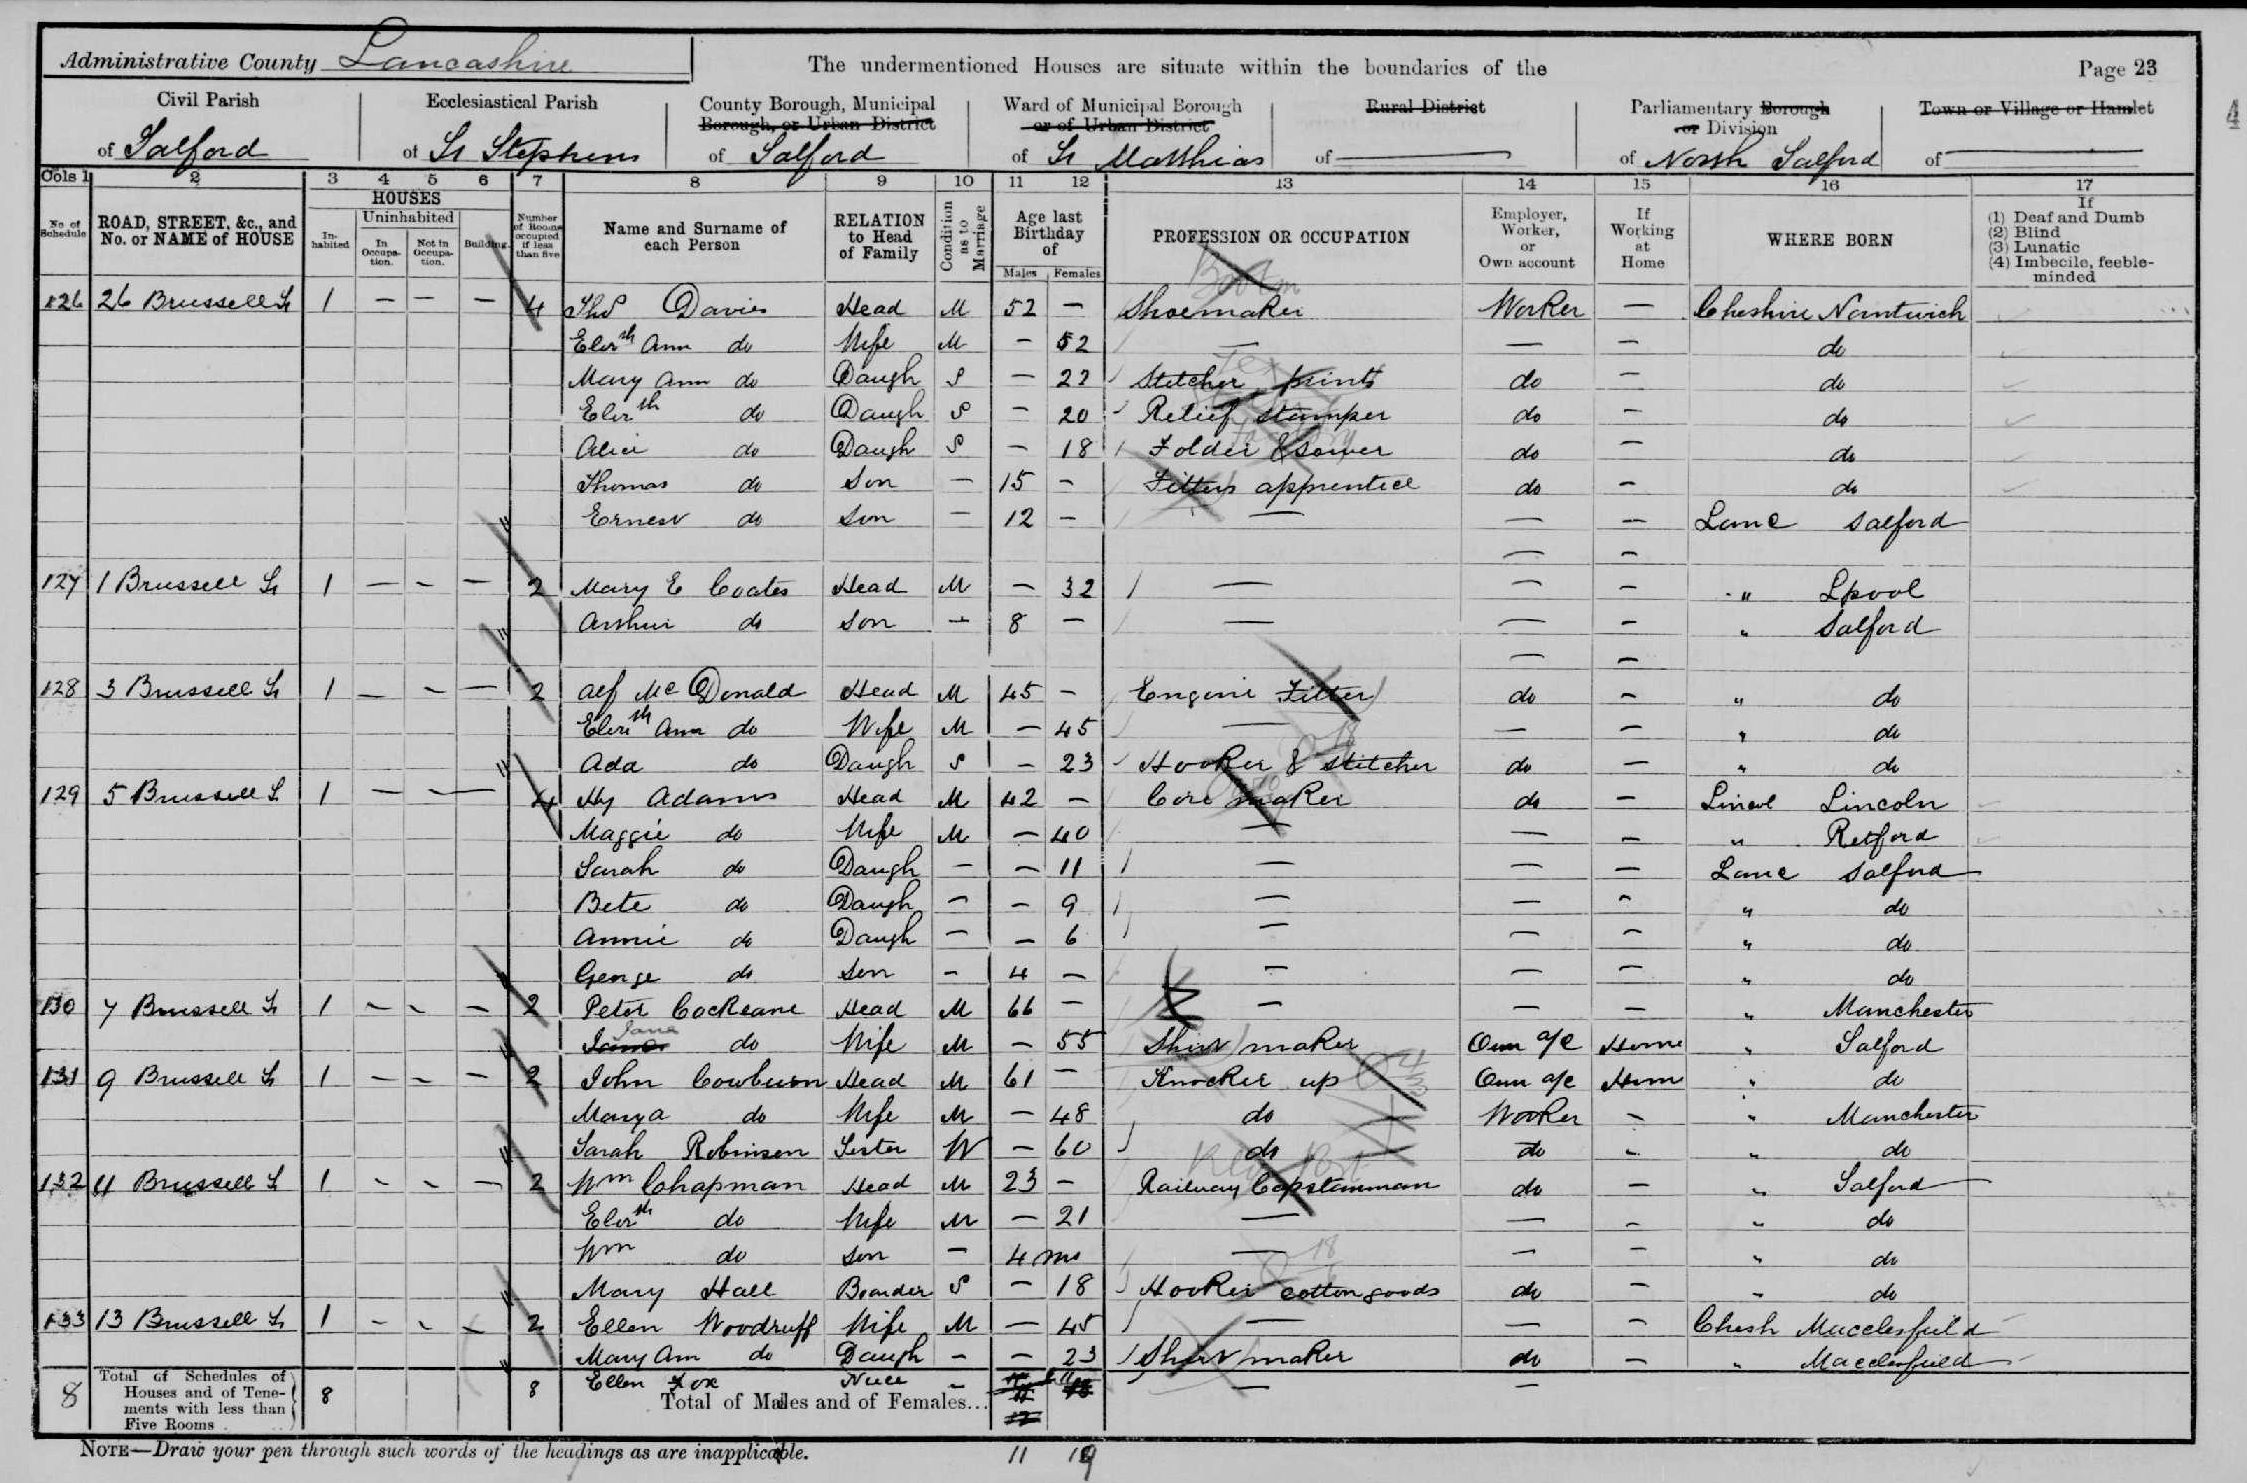 Administrative County Lancashire The undermentioned Houses are situate within the boundaries of the Page 23
Civil Parish Ecclesiastical Parish County Borough, Municipal Borough, or Urban District Ward of Municipal Borough or of Urban District Rural District Parliamentary Borough or Division Town or Village or Hamlet
of Salford of St Stephens of Salford of St Matthias of — of North Salford of —
Cols 1 2 3 4 5 6 7 8 9 10 11 12 13 14 15 16 17
No. of Schedule ROAD, STREET, &c., and No. or NAME of HOUSE HOUSES Inhabited Uninhabited In Occupation. Not in Occupation. Building. Number of Rooms occupied if less than five Name and Surname of each Person RELATION to Head of Family Condition as to Marriage Age last Birthday of Males Females PROFESSION OR OCCUPATION Employer, Worker, or Own account If Working at Home WHERE BORN If (1) Deaf and Dumb (2) Blind (3) Lunatic (4) Imbecile, feeble-minded
126 26 Brussell St 1 — — — 4 Thos Davies Head M 52 — Shoemaker Worker — Cheshire Nantwich
Elizth Ann do Wife M — 52 — — — do
Mary Ann do Daugh S — 22 Stitcher prints do — do
Elizth do Daugh S — 20 Relief stamper do — do
Alice do Daugh S — 18 Folder & sower do — do
Thomas do Son — 15 — Fitters apprentice do — do
Ernest do Son — 12 — — — — Lanc Salford
— —
127 1 Brussell St 1 — — — 2 Mary E Coates Head M — 32 — — — " Lpool
Arthur do Son — 8 — — — — " Salford
— —
128 3 Brussell St 1 — — — 2 Alf Mc Donald Head M 45 — Engine Fitter do — " do
Elizth Ann do Wife M — 45 — — — " do
Ada do Daugh S — 23 Hooker & stitcher do — " do
129 5 Brussell St 1 — — — 4 Hy Adams Head M 42 — Core maker do — Lincol Lincoln
Maggie do Wife M — 40 — — — " Retford
Sarah do Daugh — — 11 — — — Lanc Salford
Bete do Daugh — — 9 — — — " do
Annie do Daugh — — 6 — — — " do
George do Son — 4 — — — — " do
130 7 Brussell St 1 — — — 2 Peter Cockeane Head M 66 — — — — " Manchester
Jane do Wife M — 55 Shirt maker Own a/c Home " Salford
131 9 Brussell St 1 — — — 2 John Cowburn Head M 61 — Knocker up Own a/c Hom " do
Mary a do Wife M — 48 do Worker — " Manchester
Sarah Robinson Sister W — 60 do do — " do
132 11 Brussell St 1 — — — 2 Wm Chapman Head M 23 — Railway Capstanman do — " Salford
Elizth do Wife M — 21 — — — " do
Wm do Son — 4 mo — — — " do
Mary Hall Boarder S — 18 Hooker cotton goods do — " do
133 13 Brussell St 1 — — — 2 Ellen Woodruff Wife M — 45 — — — Chesh Macclesfield
Mary Ann do Daugh — — 23 Shirt maker do — " Macclesfield
Ellen Fox Niece — — —
8 Total of Schedules of Houses and of Tenements with less than Five Rooms 8 8 Total of Males and of Females...
NOTE—Draw your pen through such words of the headings as are inapplicable. 11 19